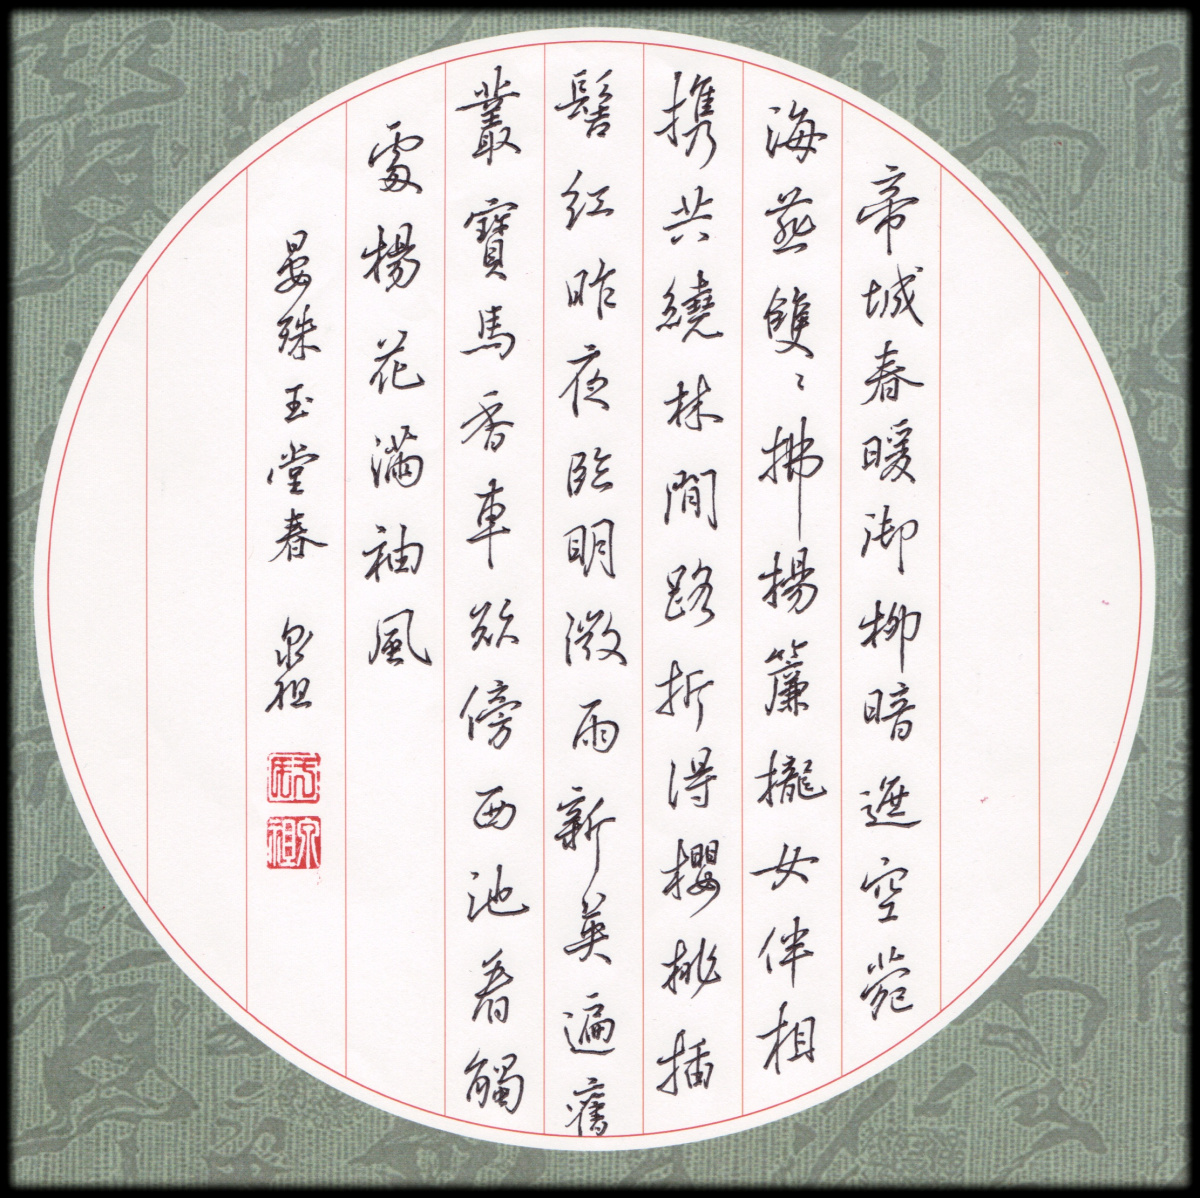 帝城春暖御柳暗遮空苑
海燕雙〻拂揚簾櫳女伴相
携共繞林間路折得櫻桃插
髻紅昨夜臨明微雨新英遍舊
叢寶馬香車欲傍西池看觸
處楊花滿袖風
晏殊玉堂春 泉祖
泉祖